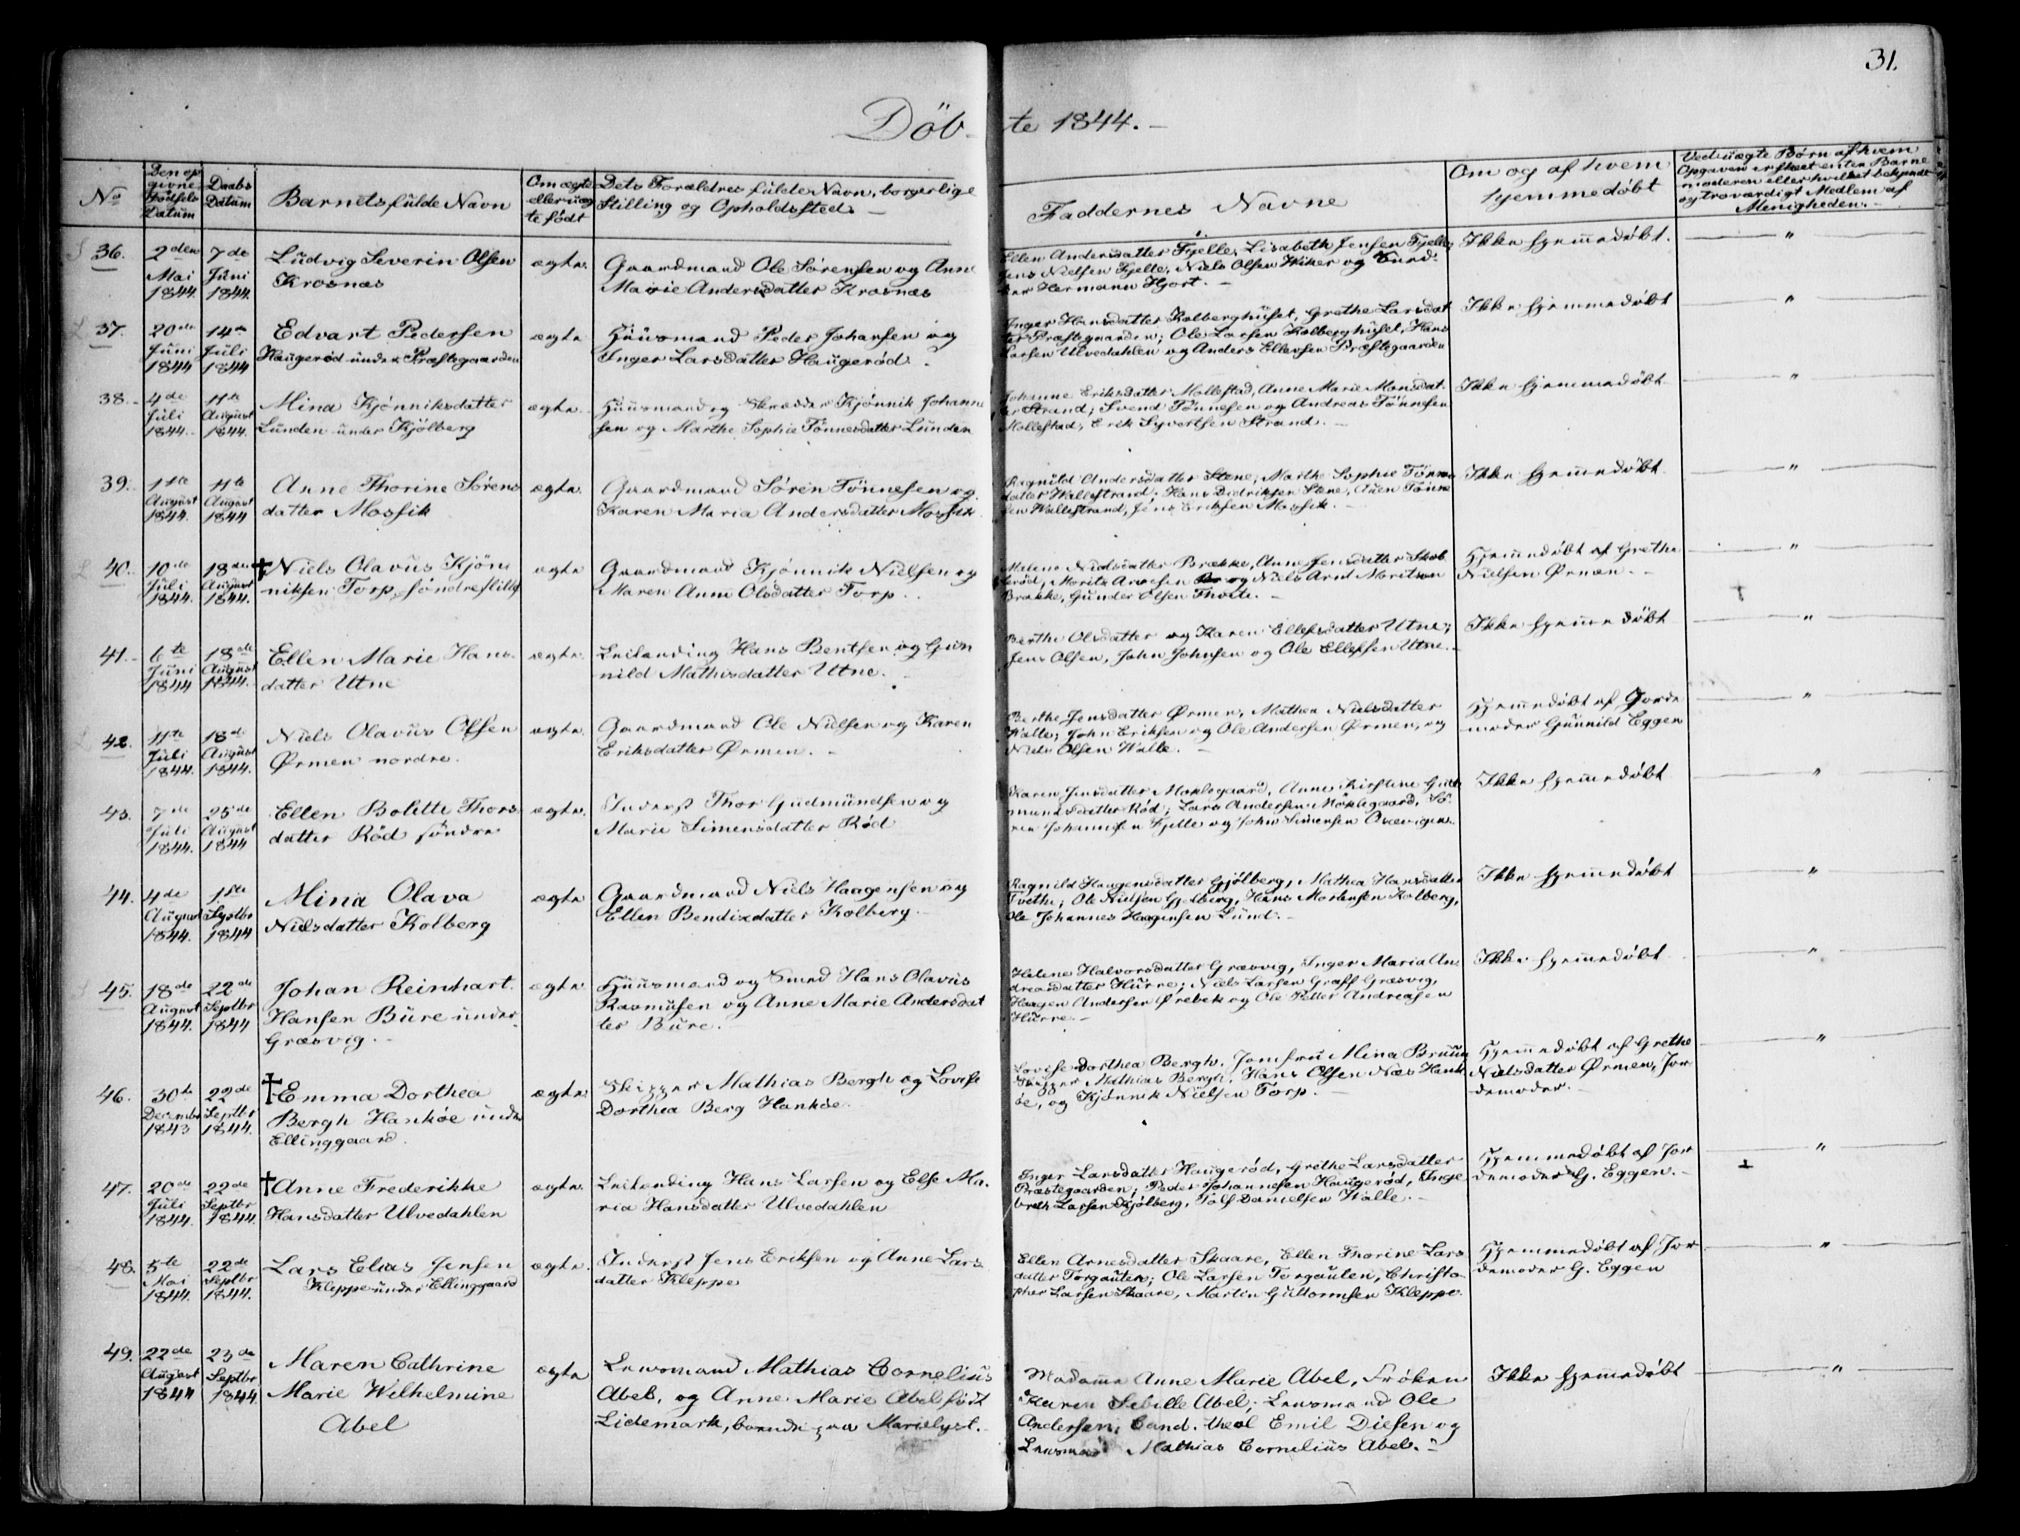 31.
Döbte 1844.
No
Den op
givne
Födsels
Datum
Daabs
Datum
Barnets fulde Navn
Om ægte
eller uæg
te født
Dets Forældres fulde Navn, borgerlige
Stilling og Opholdssted.
Faddernes Navne
Om og af hvem
hjemmedøbt
Ved uægte Børn af hvem
Opgaven er skeet enten Barne
moderen eller hvilket bekjendt
og troværdigt Medlem af
Menigheden.
36.
2den
Mai
1844.
7de
Juni
1844.
Ludvig Severin Olsen
Krosnæs
ægte.
Gaardmand Ole Sørensen og Anne
Marie Andersdatter Krosnæs
Ellen Andersdatter Fjelle, Lisabeth Jensen Fjelle,
Jens Nielsen Fjelle, Niels Olsen Wiker og
Hermann Hjort.
Ikke hjemmedøbt.
"
37.
20de
Juni
1844
14de
Juli
1844
Edvart Pedersen
Haugerød under Præstegaarden
ægte
Huusmand Peder Johansen og
Inger Larsdatter Haugerød.
Inger Hansdatter Kolberghuset, Grethe Larsdat
ter Præstegaarden; Ole Larsen Kolberghuset, Hans
Larsen Ulvedahlen og Anders Ellevsen Præstegaarden
Ikke hjemmedøbt
"
38.
4de
Juli
1844.
11te
August
1844.
Mina Kjønniksdatter
Lunden under Kjølberg
ægte.
Huusmand og Skrædder Kjønnik Johanne
sen og Marthe Sophie Tønnesdatter Lunden
Johanne Eriksdatter Mollestad, Anne Marie Monsdat
ter Strand; Svend Tønnesen og Andreas Tønnesen
Mollestad, Erik Syvertsen Strand.
Ikke hjemmedøbt
"
39.
1ste
August
1844.
11te
August
1844
Anne Thorine Sørens
datter Mossik
ægte
Gaardmand Søren Tønnesen og
Karen Maria Andersdatter Mossik.
Ragnild Andersdatter Stene, Marthe Sophie Tønnes
datter Wallestrand; Hans Didriksen Stene, Auen Tønne
sen Wallestrand, Jens Eriksen Mossik.
Ikke hjemmedøbt.
"
40.
10de
Juli
1844.
18de
August
1844.
† Niels Olavus Kjøn
niksen Torp, søndre
ægte
Gaardmand Kjønnik Nielsen og
Maren Anne Olsdatter Torp.
Malene Nielsdatter Brække, Anne Jensdatter Skob
berød, Morits Arnesen og Niels Arnt Moritsen
Brække, Gunder Olsen Thode.
Hjemmedøbt af Grethe
Nielsen Ørmen.
"
41.
6te
Juni
1844
18de
August
1844.
Ellen Marie Hans
datter Utne
ægte.
Leilænding Hans Bentsen og Gun
nild Mathisdatter Utne.
Berthe Olsdatter og Karen Ellefsdatter Utne;
Jens Olsen, John Johnsen og Ole Ellefsen Utne.
Ikke hjemmedøbt
"
42.
11te
Juli
1844.
18de
August
1844.
Niels Olavus Olsen
Ørmen nordre.
ægte.
Gaardmand Ole Nielsen og Karen
Eriksdatter Ørmen.
Berthe Jensdatter Ørmen, Mathea Nielsdatter
Walle; John Eriksen og Ole Andersen Ørmen, og
Niels Olsen Walle.
Hjemmedøbt af Jorde
moder Gunnild Eggen
"
43.
7de
Juli
1844.
25de
August
1844
Ellen Bolette Thors
datter Rød søndre
ægte.
Inderst Thor Gudmundsen og
Marie Simensdatter Rød
Karen Jensdatter Moklegaard, Anne Kirstine Gud
mundsdatter Rød; Lars Andersen Møklegaard, Sø
ren Johannesen Fjelle og John Simensen Oxevigen.
Ikke hjemmedøbt
"
44.
4de
August
1844.
1ste
Septbr
1844
Mina Olava
Nielsdatter Kolberg
ægte
Gaardmand Niels Haagensen og
Ellen Bendixdatter Kolberg.
Ragnild Haagensdatter Gjølberg, Mathea Hansdatter
Tvethe; Ole Nielsen Gjølberg, Hans Mortensen Kolberg,
Ole Johannes Haagensen Lund.
Ikke hjemmedøbt
"
45.
18de
August
1844.
22de
Septbr
1844
Johan Reinhart
Hansen Bure under
Græsvig.
ægte.
Huusmand og Smed Hans Olavus
Rasmusen og Anne Marie Andersdat
ter Bure.
Helene Halvorsdatter Græsvig, Inger Maria An
dreasdatter Hurre; Niels Larsen Graff Græsvig,
Haagen Andersen Ørebek og Ole Petter Andreasen
Hurre.
Ikke hjemmedøbt
"
46.
30te
Decembr
1843
22de
Septbr
1844.
† Emma Dorthea
Bergh Hankøe under
Ellinggaard.
ægte.
Skipper Mathias Bergh og Lovise
Dorthea Berg Hankøe.
Lovise Dorthea Bergh, Jomfru Mina Bruun
Skipper Mathias Bergh, Hans Olsen Næs Hank
øe, og Kjønnik Nielsen Torp.
Hjemmedøbt af Grethe
Nielsdatter Ørmen, Jor
demoder.
"
47.
20de
Juli
1844.
22de
Septbr
1844.
† Anne Frederikke
Hansdatter Ulvedahlen
ægte.
Leilænding Hans Larsen og Else Ma
ria Hansdatter Ulvedahlen
Inger Larsdatter Haugerød, Grethe Larsdatter
Præstegaarden; Peder Johannesen Haugerød, Inge
breth Larsen Kjølberg, Tolf Danielsen Walle.
Hjemmedøbt af Jor
demoder G. Eggen.
"
48.
5te
Mai
1844.
22de
Septbr
1844.
Lars Elias Jensen
Kleppe under Ellinggaard
ægte.
Inderst Jens Eriksen og Anne Lars
datter Kleppe
Ellen Arnesdatter Skaare, Ellen Thorine Lars
datter Torgauten; Ole Larsen Torgauten, Christo
pher Larsen Skaare, Martin Guttormsen Kleppe.
Hjemmedøbt af Jor
demoder G. Eggen
"
49.
22de
August
1844
23de
Septbr
1844.
Maren Cathrine
Marie Wilhelmine
Abel
ægte
Lensmand Mathias Cornelius
Abel, og Anne Marie Abel født
Lidemark, boende paa Marielyst.
Madame Anne Marie Abel, Frøken
Karen Sebille Abel; Lensmand Ole
Andersen, Cand. theol Emil Diesen og
Lensmand Mathias Cornelius Abel.
Ikke hjemmedøbt
"